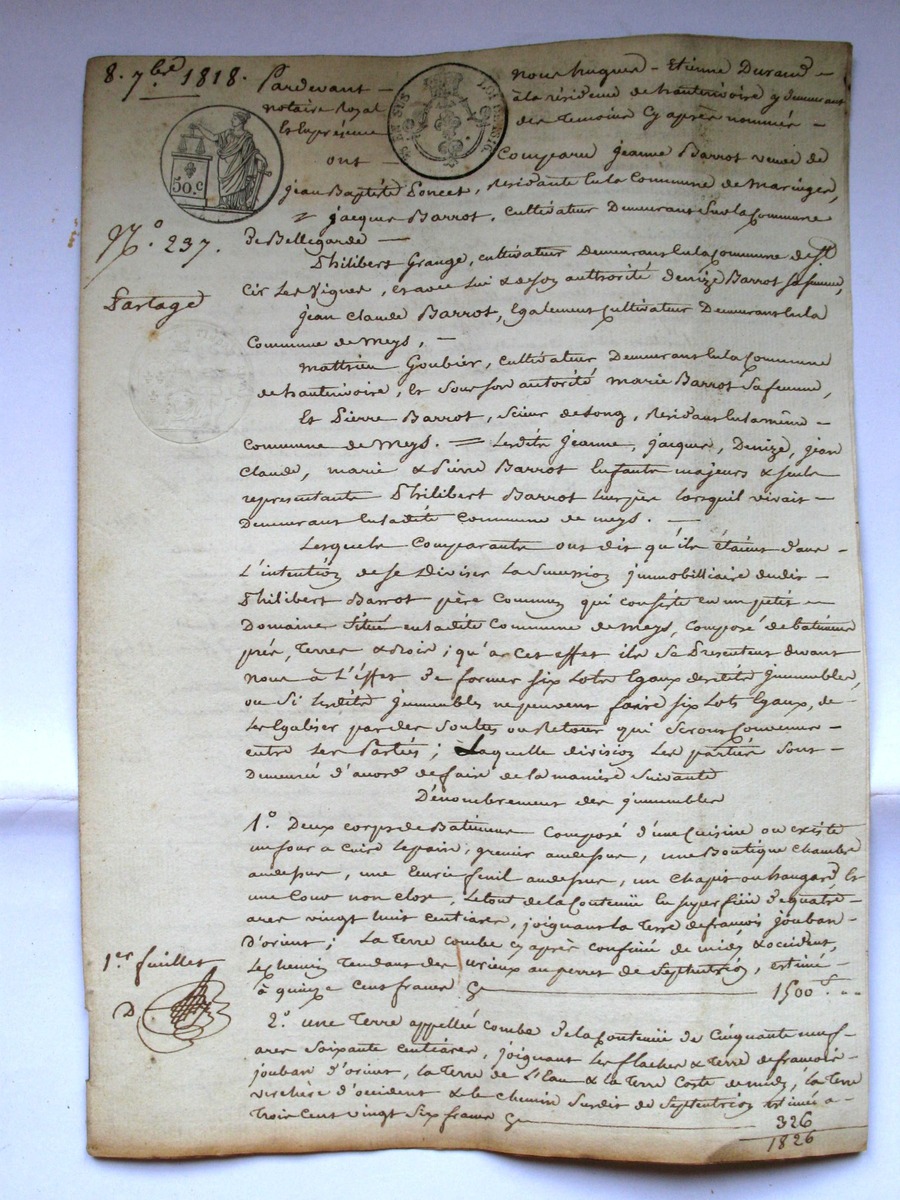 8. 7bre 1818.
N.° 237.
Partage
50.c
Pardevant nous hugues - Etienne Durand
notaire Royal à la résidence de hauterivoire y demeurant
Et En présence des temoins Cy après nommés
ont Comparu Jeanne Barrot veuve de
jean Baptiste Poncet, Residante En la Commune de Maringes,
= jacques Barrot, Cultivateur Demeurant Sur la Commune
De Bellegarde
Philibert Grange, cultivateur Demeurant En la Commune de St
Cir Les Vignes, et avec lui & de son authorité Denize Barrot Sa femme,
jean Claude Barrot, Egalement Cultivateur Demeurant En la
Commune de Meys,
Matthieu Goubier, cultivateur Demeurant En la Commune
de hauterivoire, Et Sous son autorité marie Barrot Sa femme,
Et Pierre Barrot, Scieur de Long, Residant En la même
Commune de Meys. = Lesdits Jeanne, jacques, Denize, jean
Claude, marie & Pierre Barrot Enfants majeurs & seuls
representants Philibert Barrot leur père lorsquil vivait
Demeurant En ladite Commune de meys.
Lesquels Comparants ont dit qu'ils étaient dans
L'intention de se Diviser La Succession jmmobilliaire dudit
Philibert Barrot père Commun qui consiste en un petit
Domaine Situé en ladite Commune de Meys, composé de batiments
prés, Terres & bois; qu'a cet effet ils Se Presentent devant
nous à L'Effet De former Six Lots Egaux desdits jmmeubles,
ou Si Lesdits jmmeubles ne peuvent faire Six Lots Egaux, de
Les Egaliser par des Soultes ou Retour qui Seront Convenus
entre Les Parties; Laquelle division Les parties Sont
Demeuré d'acord de faire de la maniere Suivante
Dénombrement des jmmeubles
1.° Deux corps de Batiments Composé d'une Cuisine ou existe
un four a cuire le pain, grenier au dessus, une Boutique Chambre
au dessus, une Ecurie fenil au dessus, un Chapis ou hangard, Et
une Cour non close, Le tout de la Contenue En superficie De quatre
ares vingt huit centiares, joignant La Terre de françois jouban
D'orient; La Terre combe cy après confiné de midy & occident,
Le chemin Tendant des urieux au perret de Septentrion, estimé
à quinze Cent francs Cy 1500 f
1er fuillet
D
2.° une Terre appellé combe De la Contenue de Cinquante neuf
ares Soixante centiares, joignant Les flaches & Terre de francois
jouban d'orient, la Terre de L'Eau & la Terre Coste de midy, la Terre
verchère d'occident & le chemin Susdit de Septentrion Estimée a
Trois Cent vingt Six francs Cy 326
1826